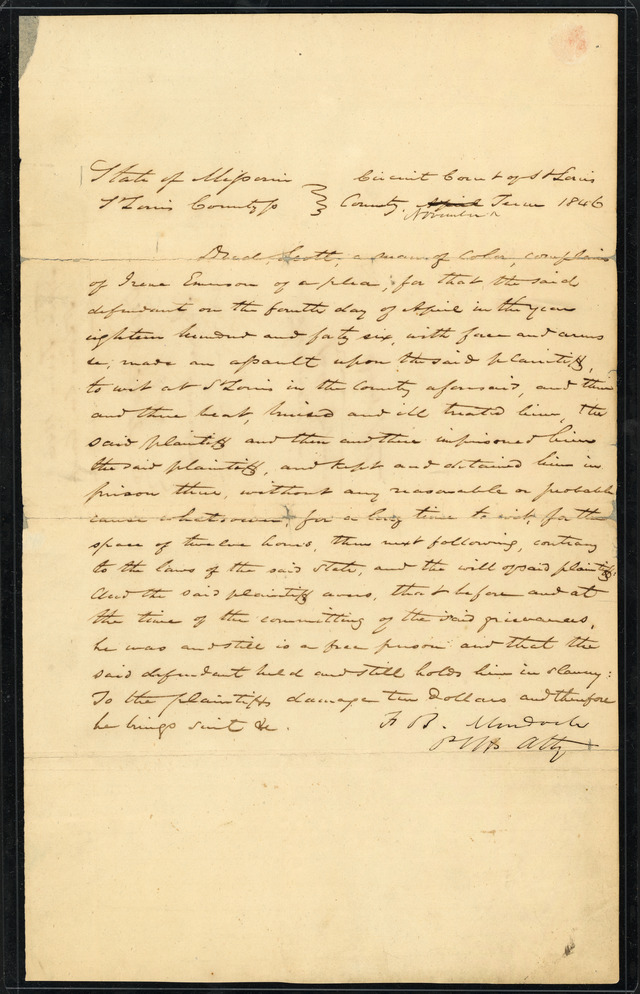 State of Missouri } Circuit Court of St Louis
St Louis County ss } County, April Term 1846
November
Dred Scott, a man of color, complains
of Irene Emerson of a plea, for that the said
defendant on the fourth day of April in the year
eighteen hundred and forty six, with force and arms
&c, made an assault upon the said plaintiff,
to wit at St Louis in the County aforesaid, and then
and there beat, bruised and ill treated him, the
said plaintiff and then and there imprisoned him
the said plaintiff, and kept and detained him in
prison there, without any reasonable or probable
cause whatsoever, for a long time to wit, for the
space of twelve hours, then next following, contrary
to the laws of the said State, and the will of said plaintiff.
And the said plaintiff avers, that before and at
the time of the committing of the said grievances,
he was and still is a free person and that the
said defendant held and still holds him in slavery:
To the plaintiffs damage ten Dollars and therefore
he brings suit &c. F. B. Murdoch
Plffs Atty